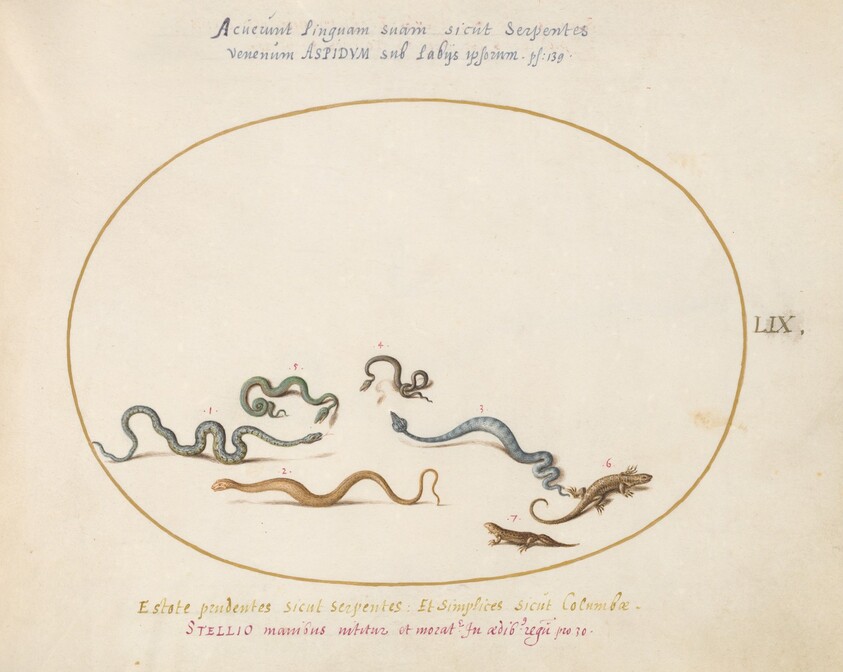 Acuerunt linguam suam sicut Serpentes
venenum ASPIDVM sub labijs ipsorum. ps: 139.
LIX,
4.
5.
1.
3.
2.
6.
7.
Estote prudentes sicut Serpentes: Et Simplices sicut Columbæ.
STELLIO manibus nititur et morat2 In ædib9 regū pro 30.